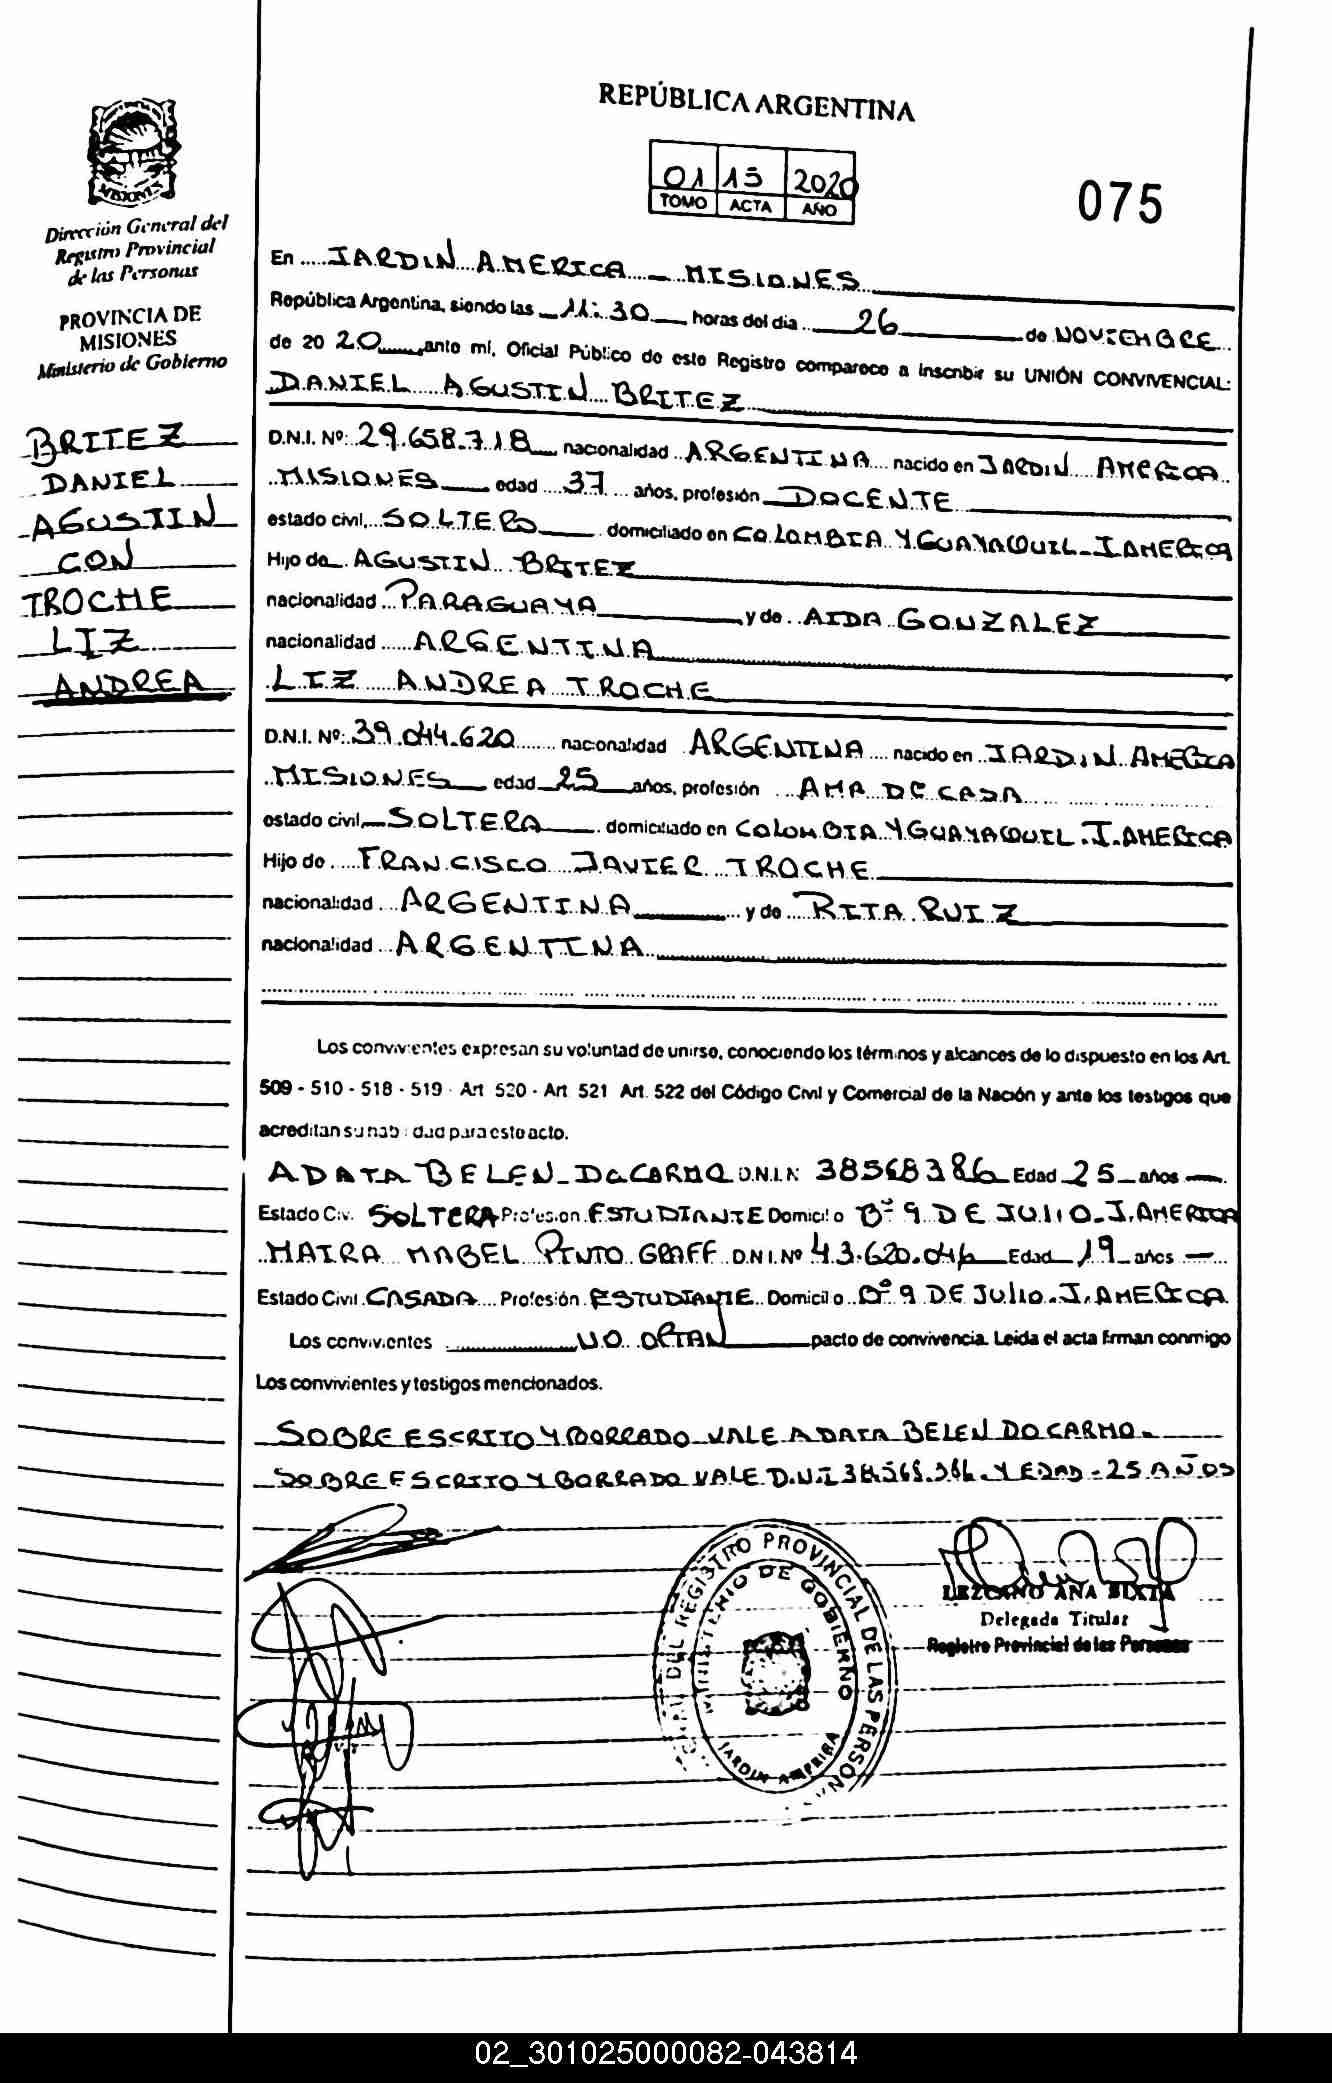 REPÚBLICA ARGENTINA
01 15 2020
TOMO ACTA AÑO
075
MISIONES
Dirección General del
Registro Provincial
de las Personas
PROVINCIA DE
MISIONES
Ministerio de Gobierno
BRITEZ
DANIEL
AGUSTIN
CON
TROCHE
LIZ
ANDREA
En JARDIN AMERICA - MISIONES
República Argentina, siendo las 11:30 horas del dia 26 de NOVIEMBRE
de 20 20 ante mí, Oficial Público de este Registro comparece a inscribir su UNIÓN CONVIVENCIAL:
DANIEL AGUSTIN BRITEZ
D.N.I. Nº: 29.658.718 nacionalidad ARGENTINA nacido en JARDIN AMERICA
MISIONES edad 37 años, profesión DOCENTE
estado civil, SOLTERO domiciliado en COLOMBIA Y GUAYAQUIL - J AMERICA
Hijo de AGUSTIN BRITEZ
nacionalidad PARAGUAYA y de AIDA GONZALEZ
nacionalidad ARGENTINA
LIZ ANDREA TROCHE
D.N.I. Nº: 39.044.620 nacionalidad ARGENTINA nacido en JARDIN AMERICA
MISIONES edad 25 años, profesión AMA DE CASA
estado civil SOLTERA domiciliado en COLOMBIA Y GUAYAQUIL. J. AMERICA
Hijo de FRANCISCO JAVIER TROCHE
nacionalidad ARGENTINA y de RITA RUIZ
nacionalidad ARGENTINA
Los convivientes expresan su voluntad de unirse, conociendo los términos y alcances de lo dispuesto en los Art.
509 - 510 - 518 - 519 - Art 520 - Art 521 Art. 522 del Código Civil y Comercial de la Nación y ante los testigos que
acreditan su habilidad para este acto.
ADATA BELEN DO CARMO D.N.I.N 38568386 Edad 25 años
Estado Civ. SOLTERA Profesion ESTUDIANTE Domicilio Bº 9 DE JULIO - J. AMERICA
MAIRA MABEL PINTO GRAFF D.N.I. Nº 43.620.046 Edad 19 años
Estado Civil CASADA Profesión ESTUDIANTE Domicilio Bº 9 DE Julio - J. AMERICA
Los convivientes NO OPTAN pacto de convivencia. Leida el acta firman conmigo
Los convivientes y testigos mencionados.
SOBRE ESCRITO Y BORRADO VALE ADATA BELEN DO CARMO.
SOBRE ESCRITO Y BORRADO VALE D.N.I 38.568.386 Y EDAD - 25 AÑOS
DEL REGISTRO PROVINCIAL DE LAS PERSON
MINISTERIO DE GOBIERNO
JARDIN AMERICA
LEZCANO ANA SIXTA
Delegada Titular
Registro Provincial de las Personas
02_301025000082-043814